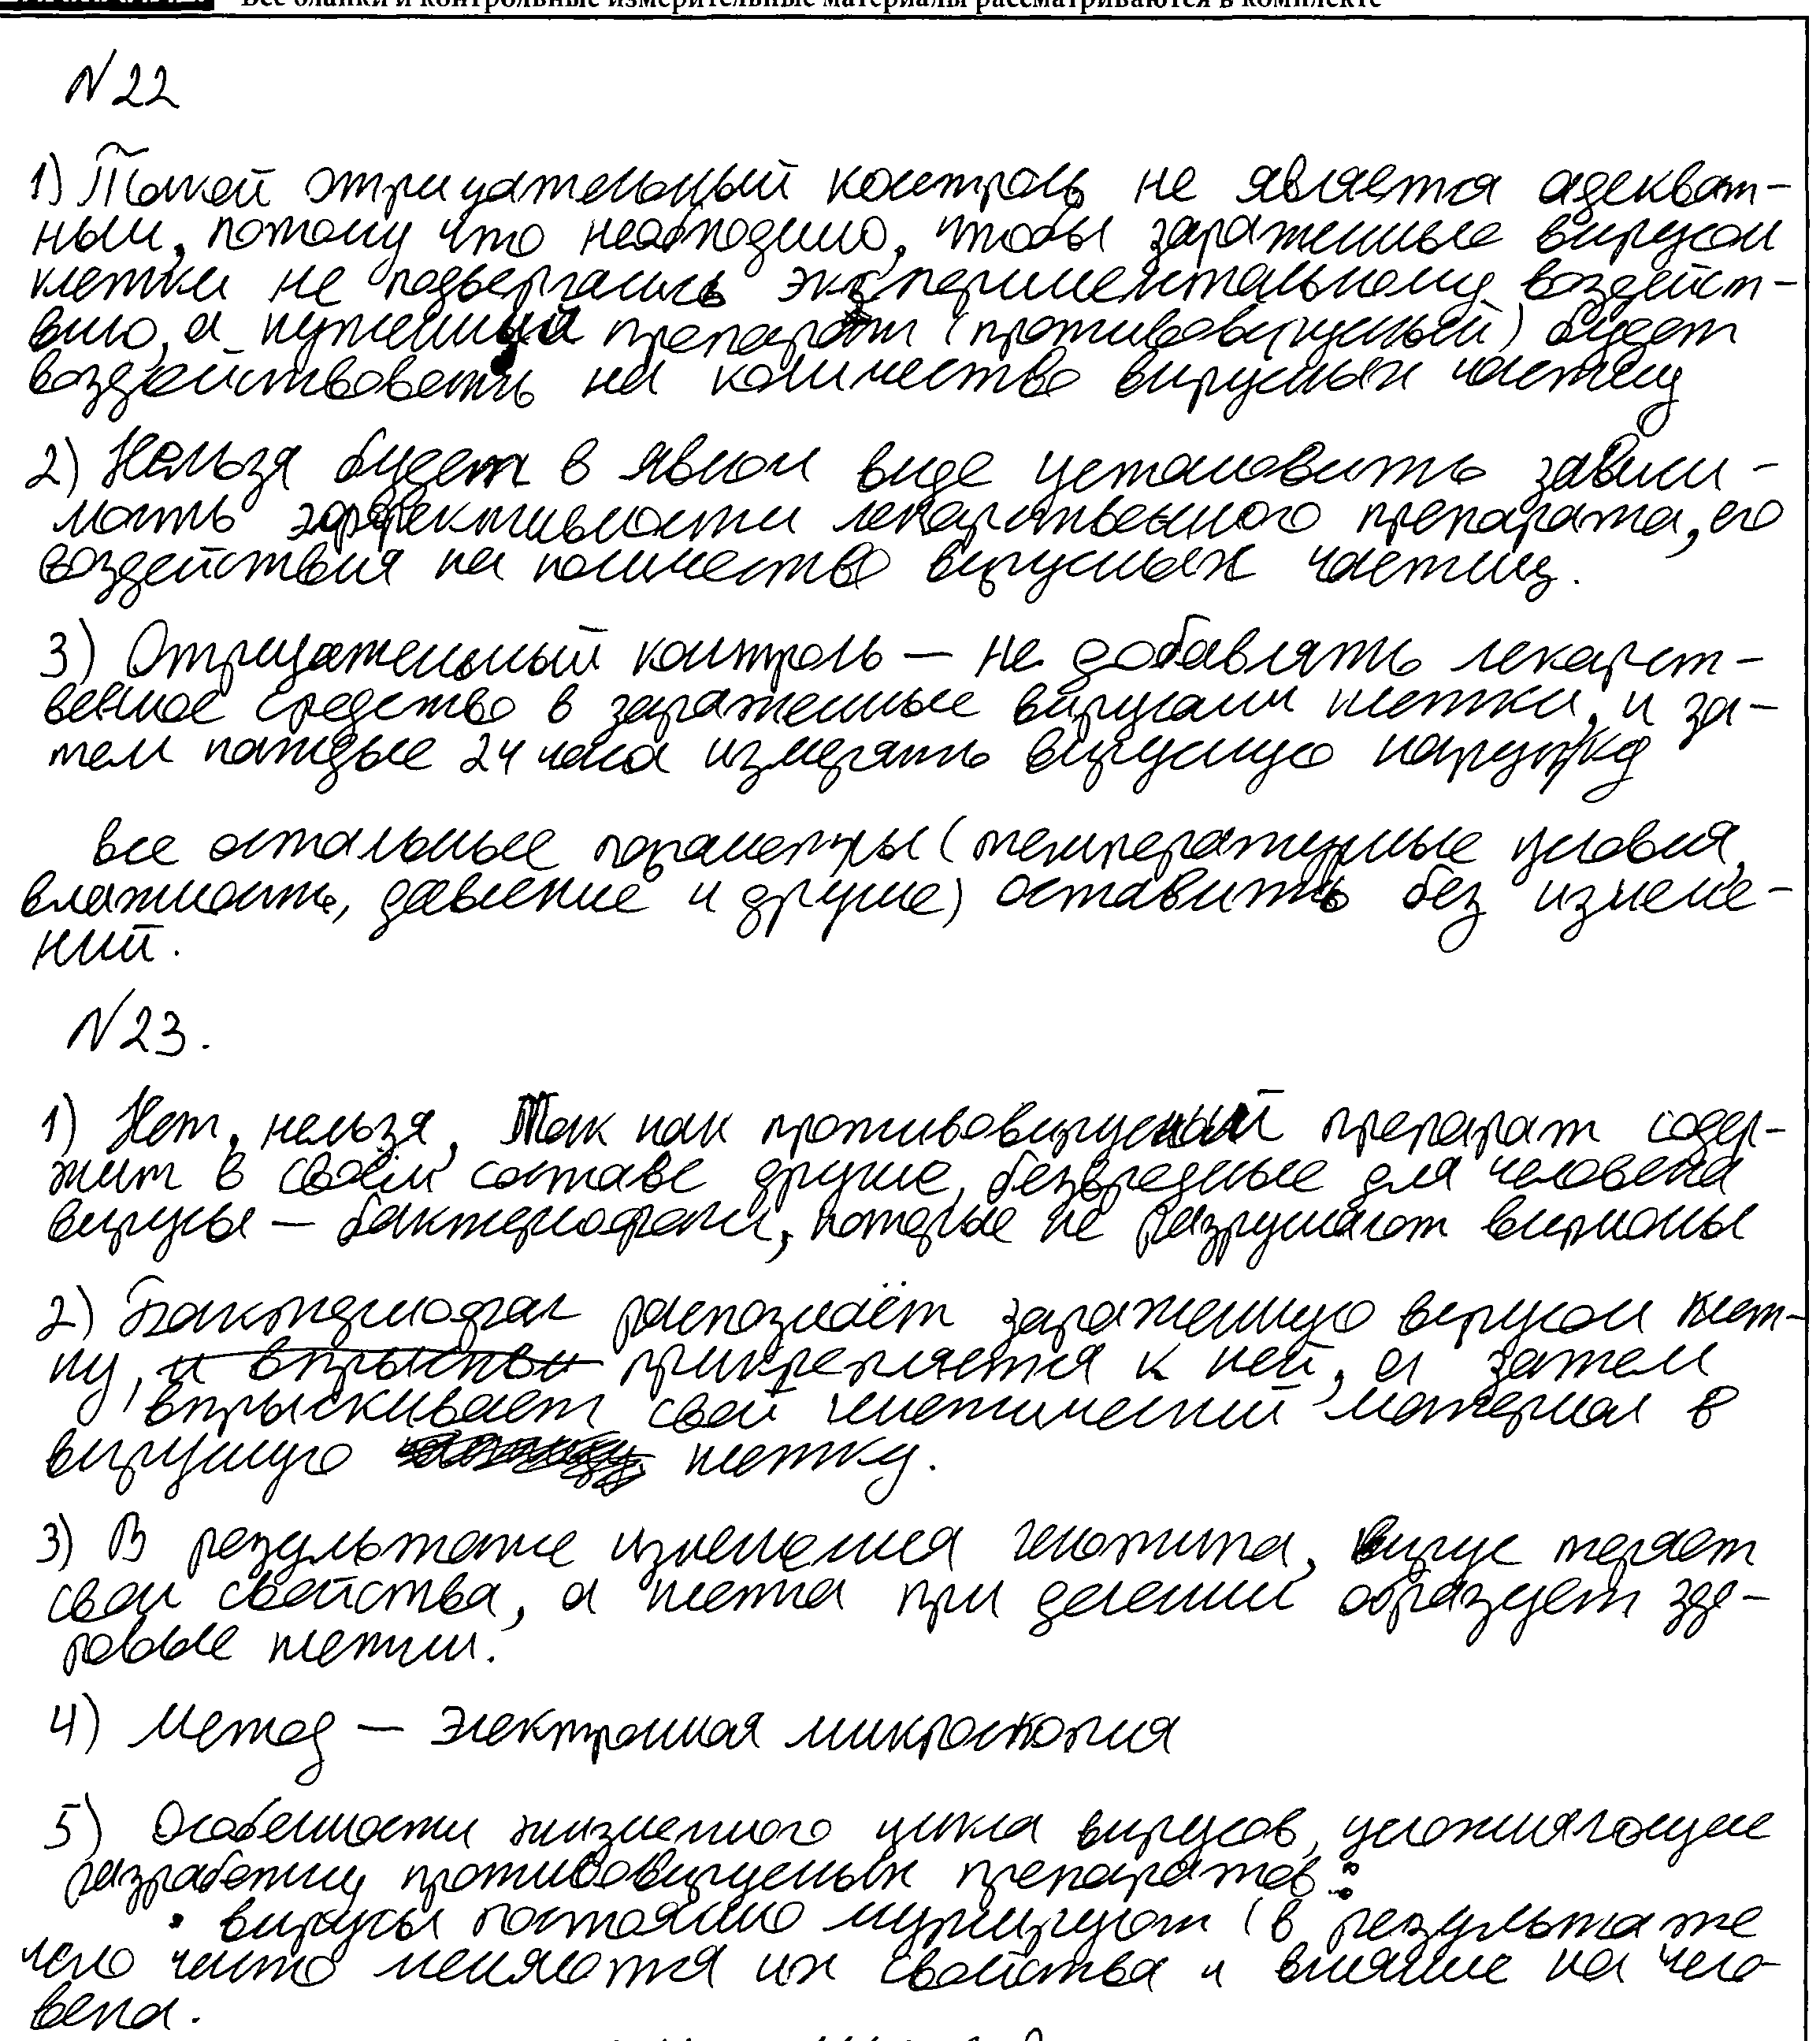 Все бланки и контрольные измерительные материалы рассматриваются в комплекте
N 22
1) Такой отрицательный контроль не является адекват-
ным, потому что необходимо, чтобы зараженные вирусом
клетки не подвергались экспериментальному воздейст-
вию, а нужный препарат (противовирусный) будет
воздействовать на количество вирусных частиц
2) Нельзя будет в явном виде установить зависи-
мость эффективности лекарственного препарата, его
воздействия на количество вирусных частиц.
3) Отрицательный контроль — не добавлять лекарст-
венное средство в зараженные вирусами клетки, и за-
тем каждые 24 часа измерять вирусную нагрузку
все остальные параметры (температурные условия,
влажность, давление и другие) оставить без измене-
ний.
N 23.
1) Нет, нельзя, Так как противовирусный препарат содер-
жит в своём составе другие, безвредные для человека
вирусы — бактериофаги, которые не разрушают вирионы
2) Бактериофаг распознаёт зараженную вирусом клет-
ку, прикрепляется к ней, а затем
впрыскивает свой генетический материал в
вирусную клетку.
3) В результате изменения генотипа, вирус теряет
свои свойства, а клетка при делении образует здо-
ровые клетки.
4) Метод — электронная микроскопия
5) Особенности жизненного цикла вирусов, усложняющие
разработку противовирусных препаратов:
• вирусы постоянно мутируют (в результате
чего часто меняются их свойства и влияние на чело-
века.